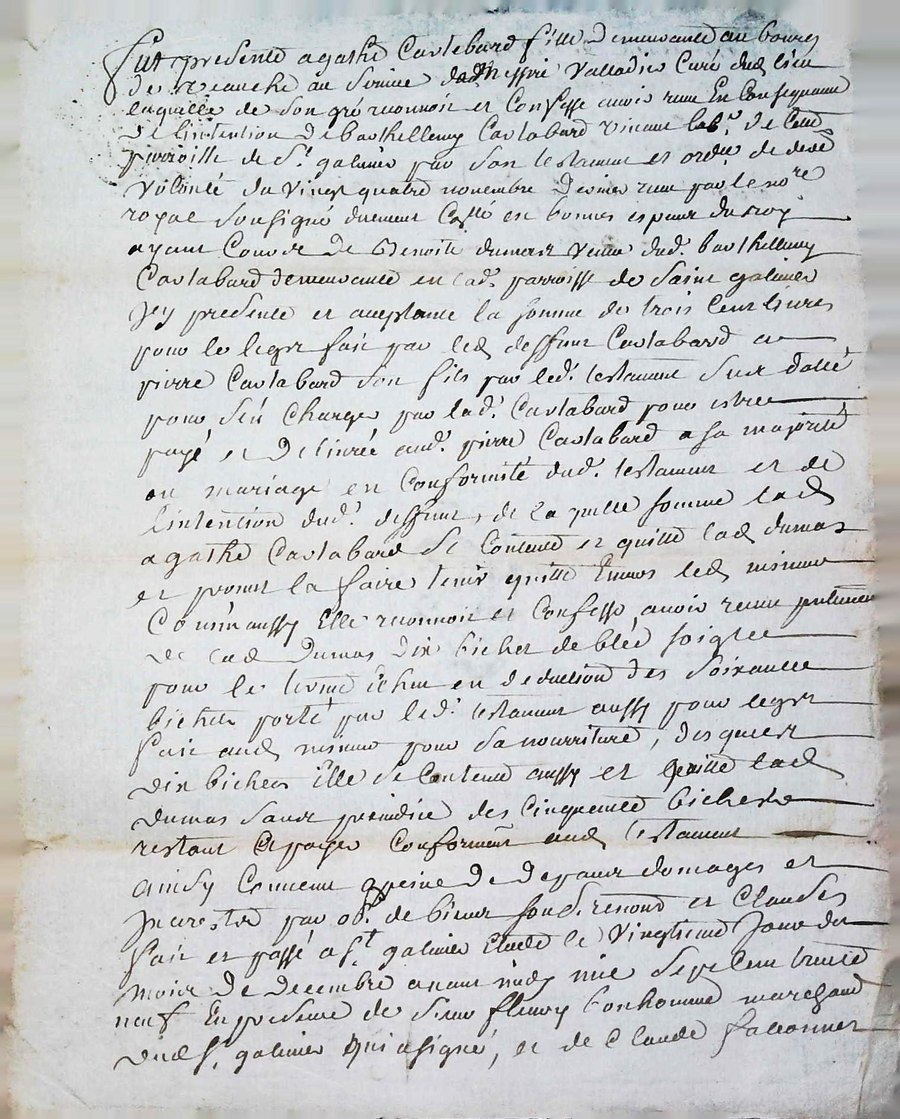 fut presente agathe Cartabard fille demeurante au bourg
de au service dud messire Valladier Curé dud lieu
laquelle de son gré reconnoit et Confesse avoir reçeu En Consequance
de l'intention de barthellemy Cartabard vivant lab.r de Cette
parroisse de S.t galmier par son testament et ord.re de dere
volonté du vingt quatre novembre dernier reçu par le no.re
royal soussigné duement Coll.é en bonnes especes du roy
ayant Cours de Benoite dumas veuve dud. barthellemy
Cartabard demeurante en lad. parroisse de saint galmier
Jcy presente et aceptante la somme de trois Cent livres
pour le legat fait par led deffunt Cartabard a
pierre Cartabard son fils par led. testament sus datté
pour s'en Charger par lad. Cartabard pour estre
payé et delivrée aud. pierre Cartabard a sa majorité
ou mariage en Conformité dud. testament et de
l'intention dud. deffunt, de laquelle somme lad
agathe Cartabard se Contente et quitte lad dumas
et promet la faire tenir quitte Envers led mineur
Comme aussy Elle reconnoit et Confesse avoir reçeu
de lad Dumas dix bichet de bled soigle
pour le terme Echeu en deduction des soixante
bichets porté par led. testament aussy pour legat
fait aud mineur pour sa nourriture, desquels
dix bichets Elle se Contente aussy et quitte lad
dumas sans prejudice des Cinquante bichets
restant a payer Conformem.t aud testament
ainsy Convenu a peine de depans domages et
jnterestz par ob. de biens soub.z renond et Clauses
fait et passé a S.t galmier Etude le vingtieme jour du
mois de decembre avant midy mil sept Cent trente
neuf En presence de sieur fleury bonhomme marchand
dud S. galmier qui a signé, et de Claude falconnet